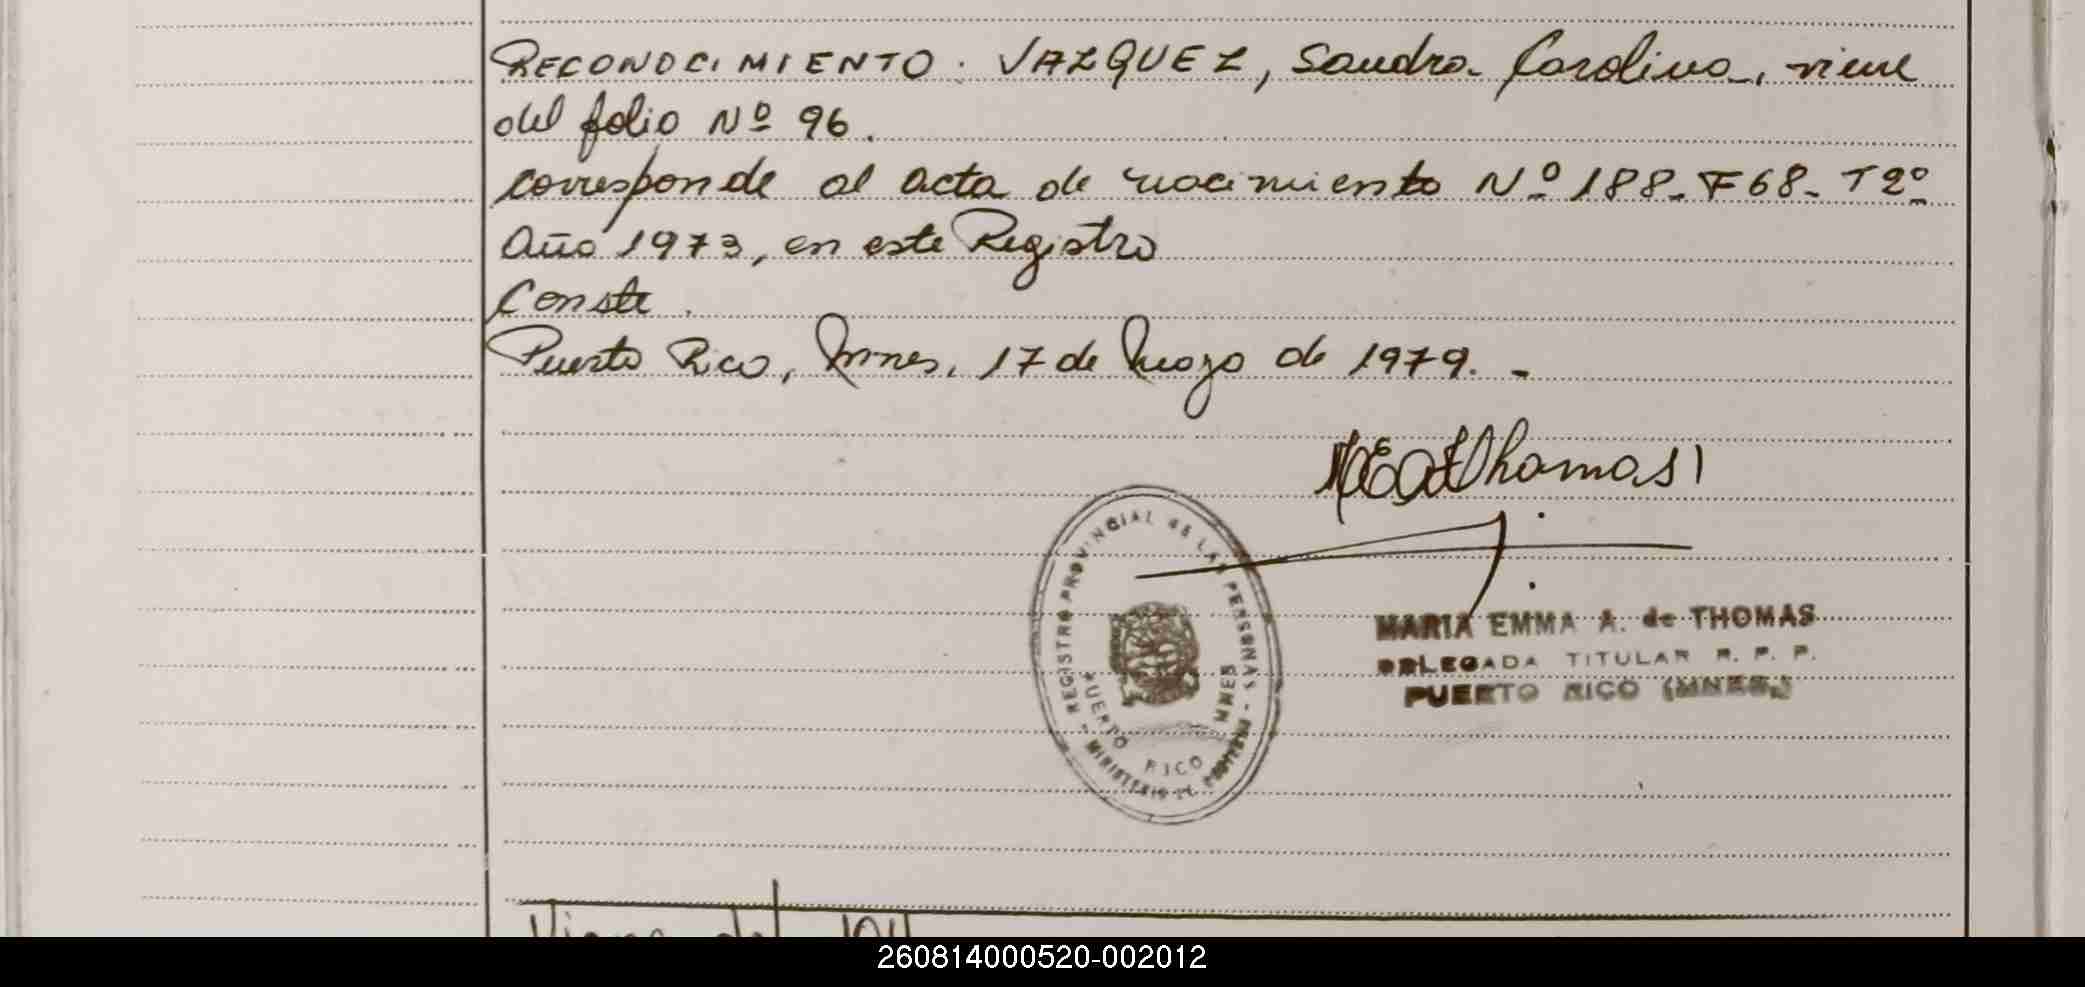 RECONOCIMIENTO. VAZQUEZ, Sandra Carolina, viene
del folio Nº 96.
corresponde al acta de nacimiento Nº 188-F68-T2º
Año 1973, en este Registro
Conste.
Puerto Rico, Mnes, 17 de Mayo de 1979.-
MEAdeThomas
REGISTRO PROVINCIAL DE LAS PERSONAS
PUERTO RICO MNES
MINISTERIO DE
MARIA EMMA A. de THOMAS
DELEGADA TITULAR R. P. P.
PUERTO RICO (MNES.)
Viene del 104
260814000520-002012